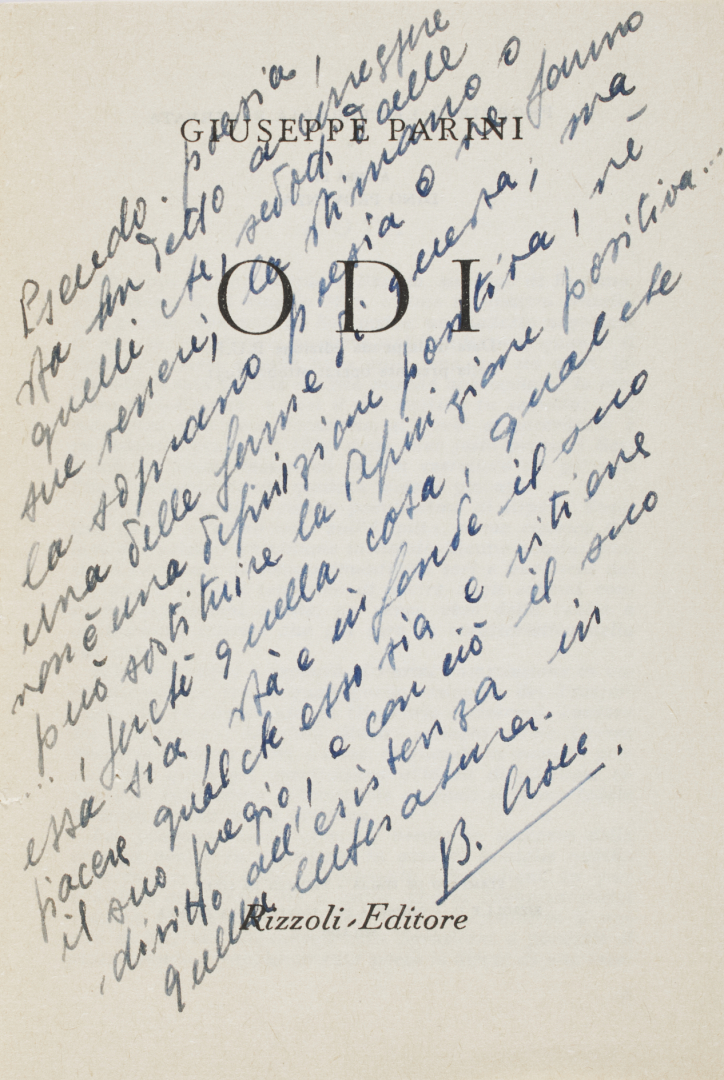 GIUSEPPE PARINI
ODI
Pseudo-poesia,
sta ben detto a
quelli che, sedotti dalle
sue veneri, la stimano o
la sognano poesia o ne fanno
una delle forme di questa; ma
non è una definizione positiva, nè
può sostituire la definizione positiva...
..., perchè quella cosa, qualche
essa sia, dà e infonde il suo
piacere qualche esso sia e ritiene
il suo pregio, e con ciò il suo
diritto all'esistenza in
quella letteratura.
B. Croce.
Rizzoli-Editore